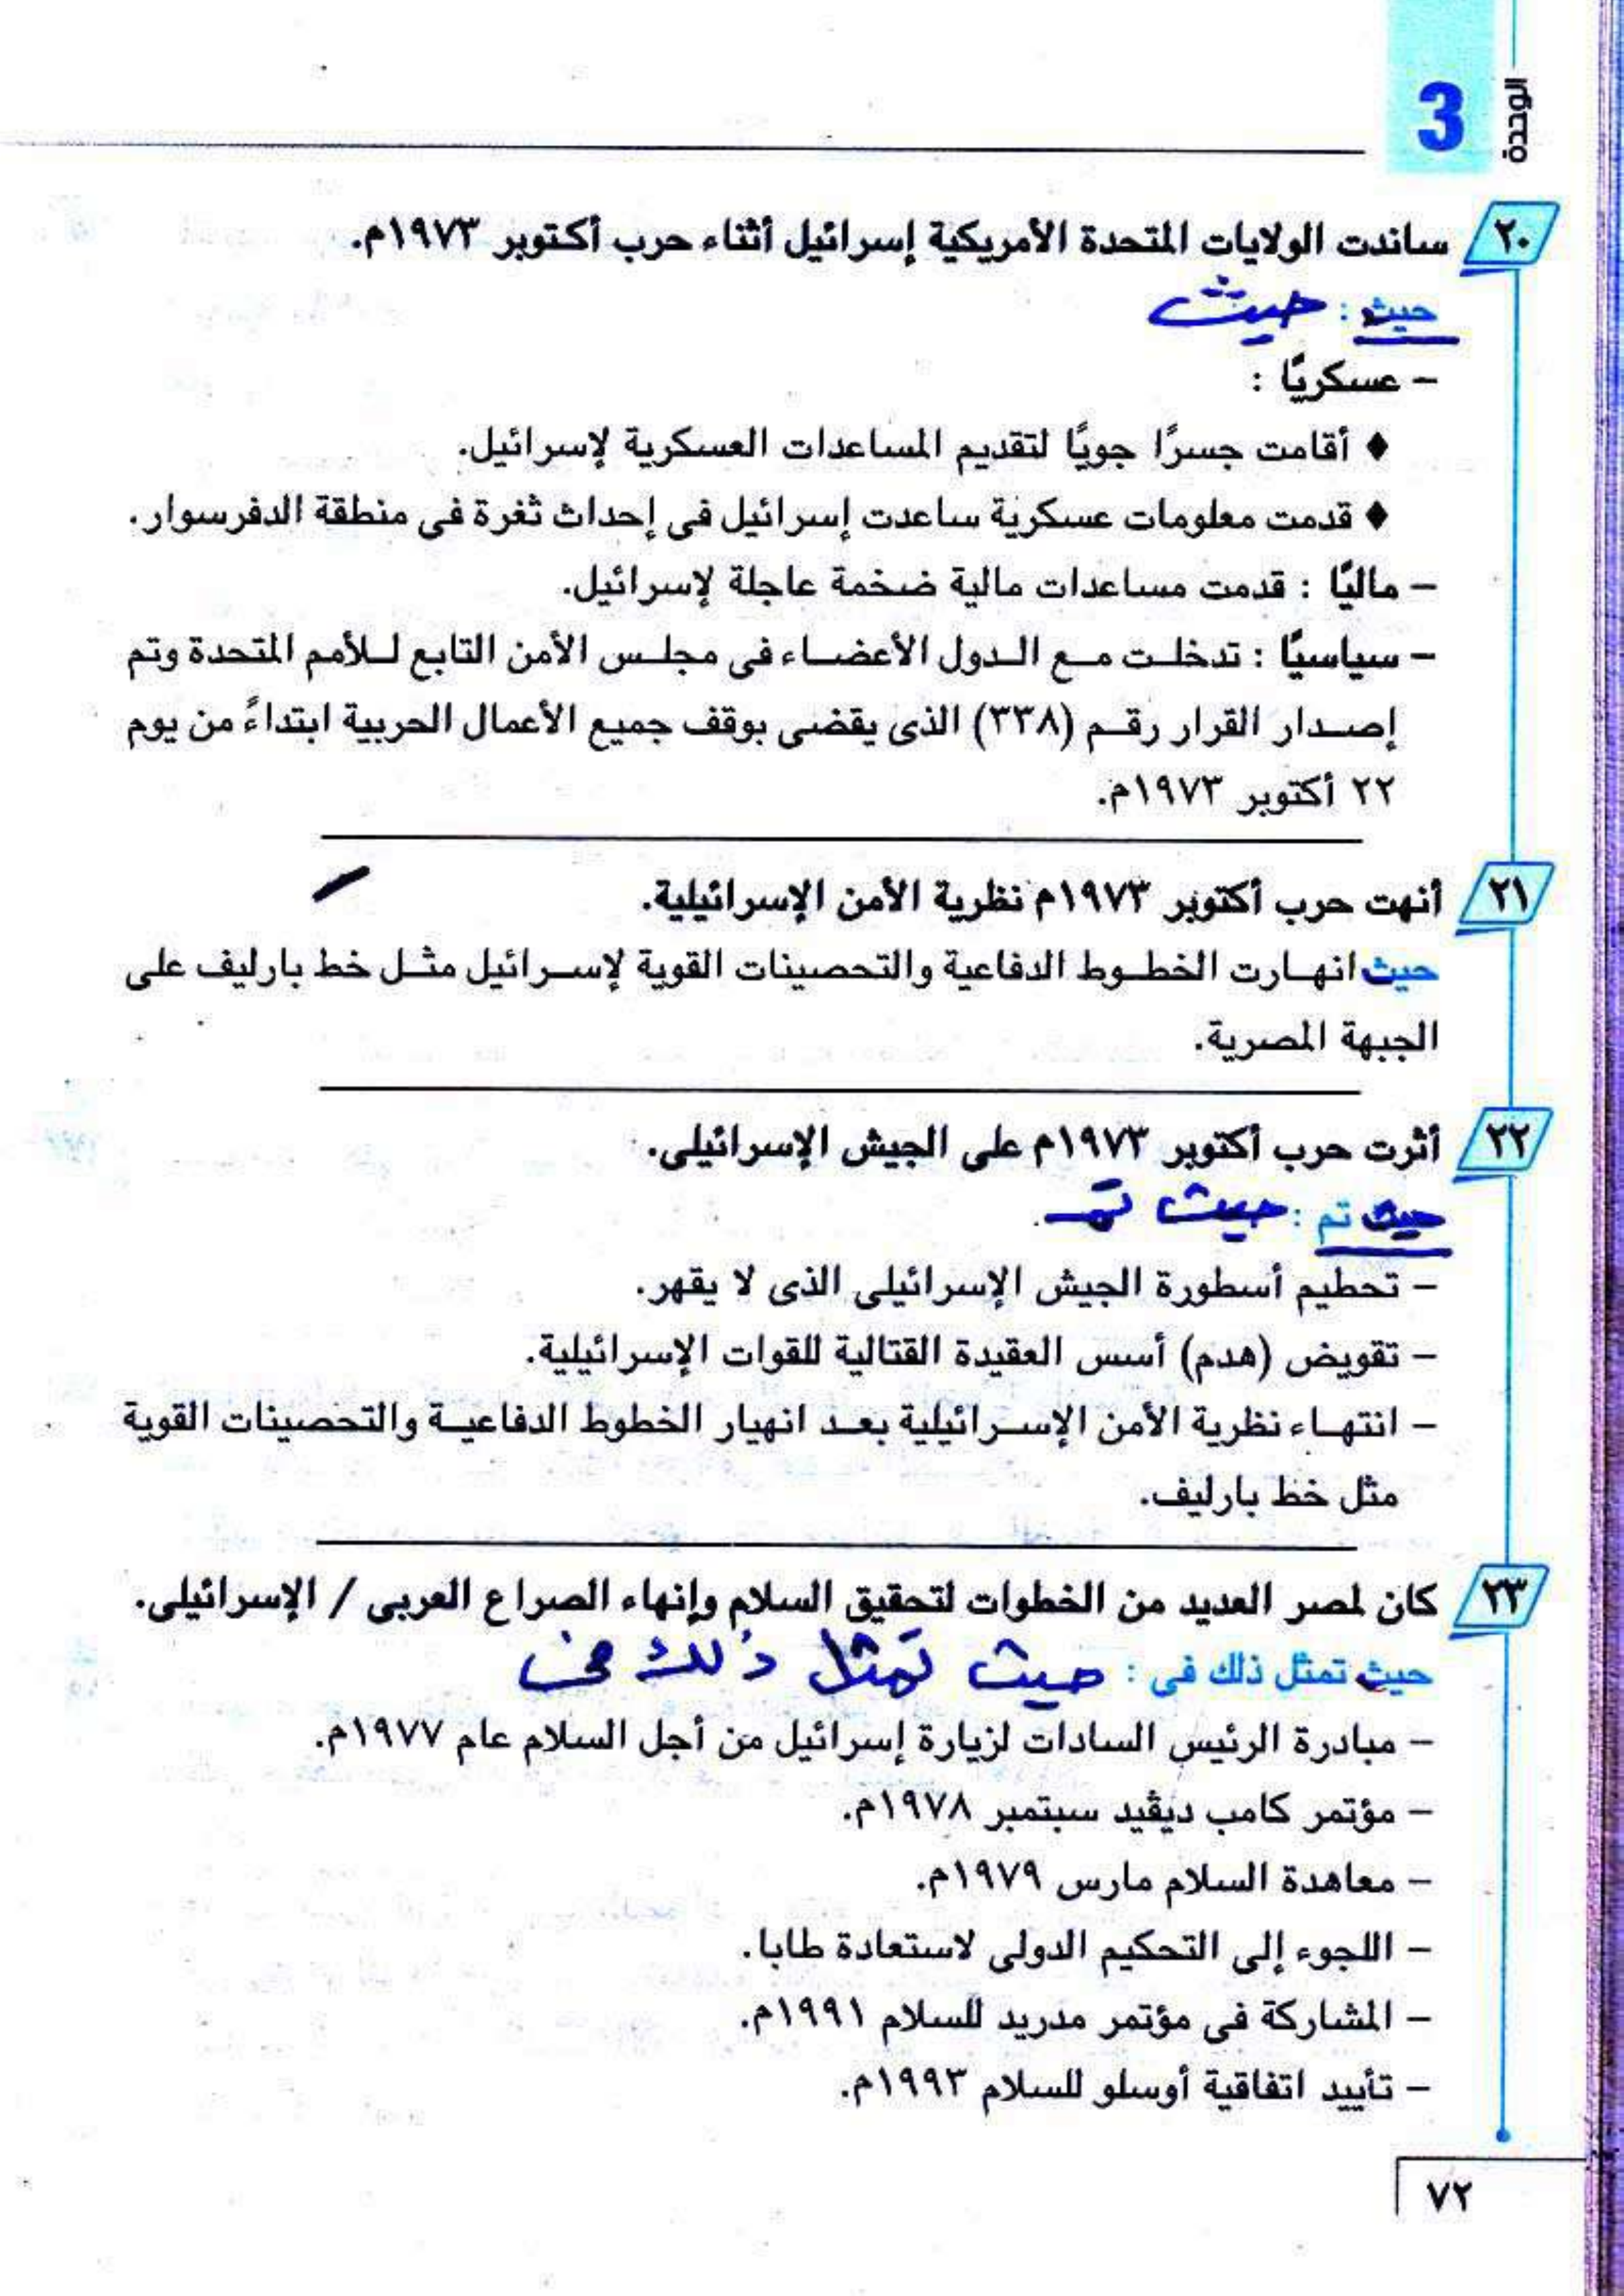 الوحدة
3
٢٠ ساندت الولايات المتحدة الأمريكية إسرائيل أثناء حرب أكتوبر ١٩٧٣م.
حيث : حيث
- عسكريًا :
♦ أقامت جسرًا جويًا لتقديم المساعدات العسكرية لإسرائيل.
♦ قدمت معلومات عسكرية ساعدت إسرائيل فى إحداث ثغرة فى منطقة الدفرسوار.
- ماليًا : قدمت مساعدات مالية ضخمة عاجلة لإسرائيل.
- سياسيًا : تدخلت مع الدول الأعضاء فى مجلس الأمن التابع للأمم المتحدة وتم
إصدار القرار رقم (٣٣٨) الذى يقضى بوقف جميع الأعمال الحربية ابتداءً من يوم
٢٢ أكتوبر ١٩٧٣م.
٢١ أنهت حرب أكتوبر ١٩٧٣م نظرية الأمن الإسرائيلية.
حيث انهارت الخطوط الدفاعية والتحصينات القوية لإسرائيل مثل خط بارليف على
الجبهة المصرية.
٢٢ أثرت حرب أكتوبر ١٩٧٣م على الجيش الإسرائيلى.
حيث تم : حيث تم
- تحطيم أسطورة الجيش الإسرائيلى الذى لا يقهر.
- تقويض (هدم) أسس العقيدة القتالية للقوات الإسرائيلية.
- انتهاء نظرية الأمن الإسرائيلية بعد انهيار الخطوط الدفاعية والتحصينات القوية
مثل خط بارليف.
٢٣ كان لمصر العديد من الخطوات لتحقيق السلام وإنهاء الصراع العربى / الإسرائيلى.
حيث تمثل ذلك فى : حيث تمثل ذلك فى
- مبادرة الرئيس السادات لزيارة إسرائيل من أجل السلام عام ١٩٧٧م.
- مؤتمر كامب ديڤيد سبتمبر ١٩٧٨م.
- معاهدة السلام مارس ١٩٧٩م.
- اللجوء إلى التحكيم الدولى لاستعادة طابا.
- المشاركة فى مؤتمر مدريد للسلام ١٩٩١م.
- تأييد اتفاقية أوسلو للسلام ١٩٩٣م.
٧٢